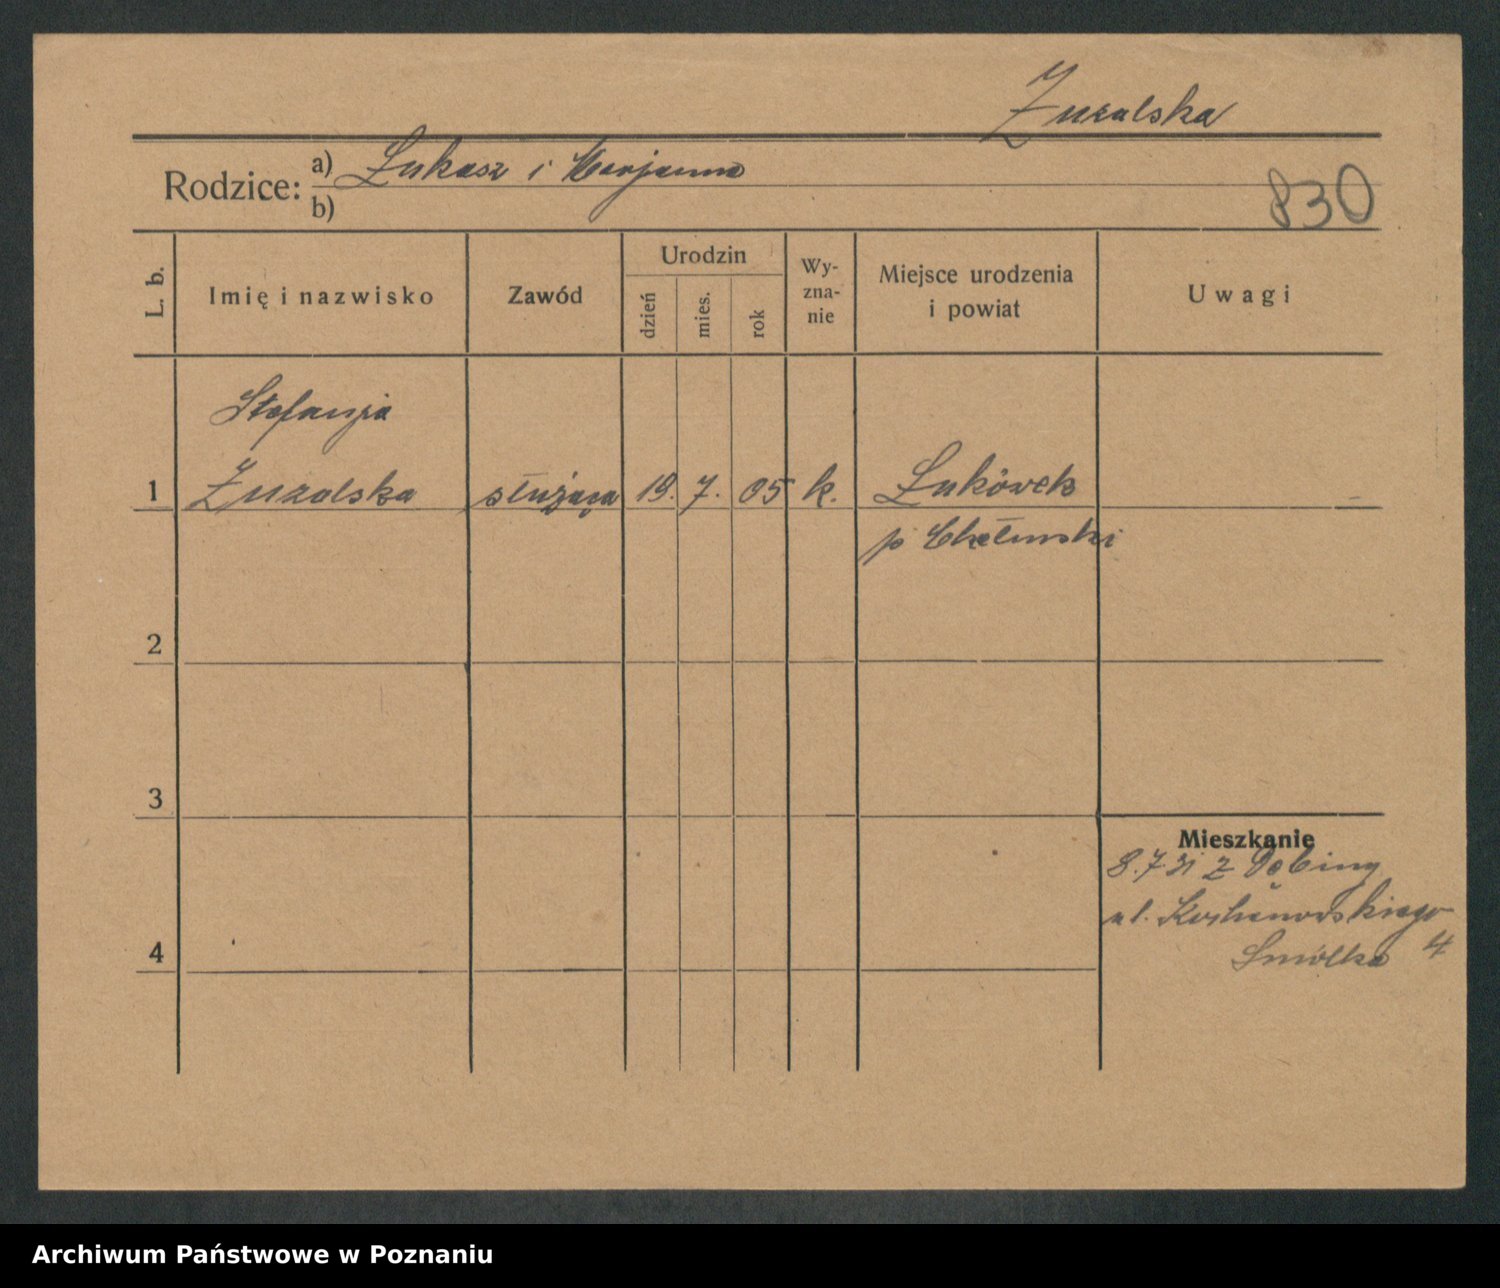 Żuralska
Rodzice: a) Łukasz i Marjanna
b)
830
L. b. Imię i nazwisko Zawód Urodzin dzień mies. rok Wy-zna-nie Miejsce urodzenia i powiat Uwagi
Stefanja
1 Żuralska służąca 19. 7. 05 k. Łukówek
p Chełmski
2
3
Mieszkanie
8.7 31 z Dębiny
ul. Kochanowskiego
4 Smółka 4
Archiwum Państwowe w Poznaniu